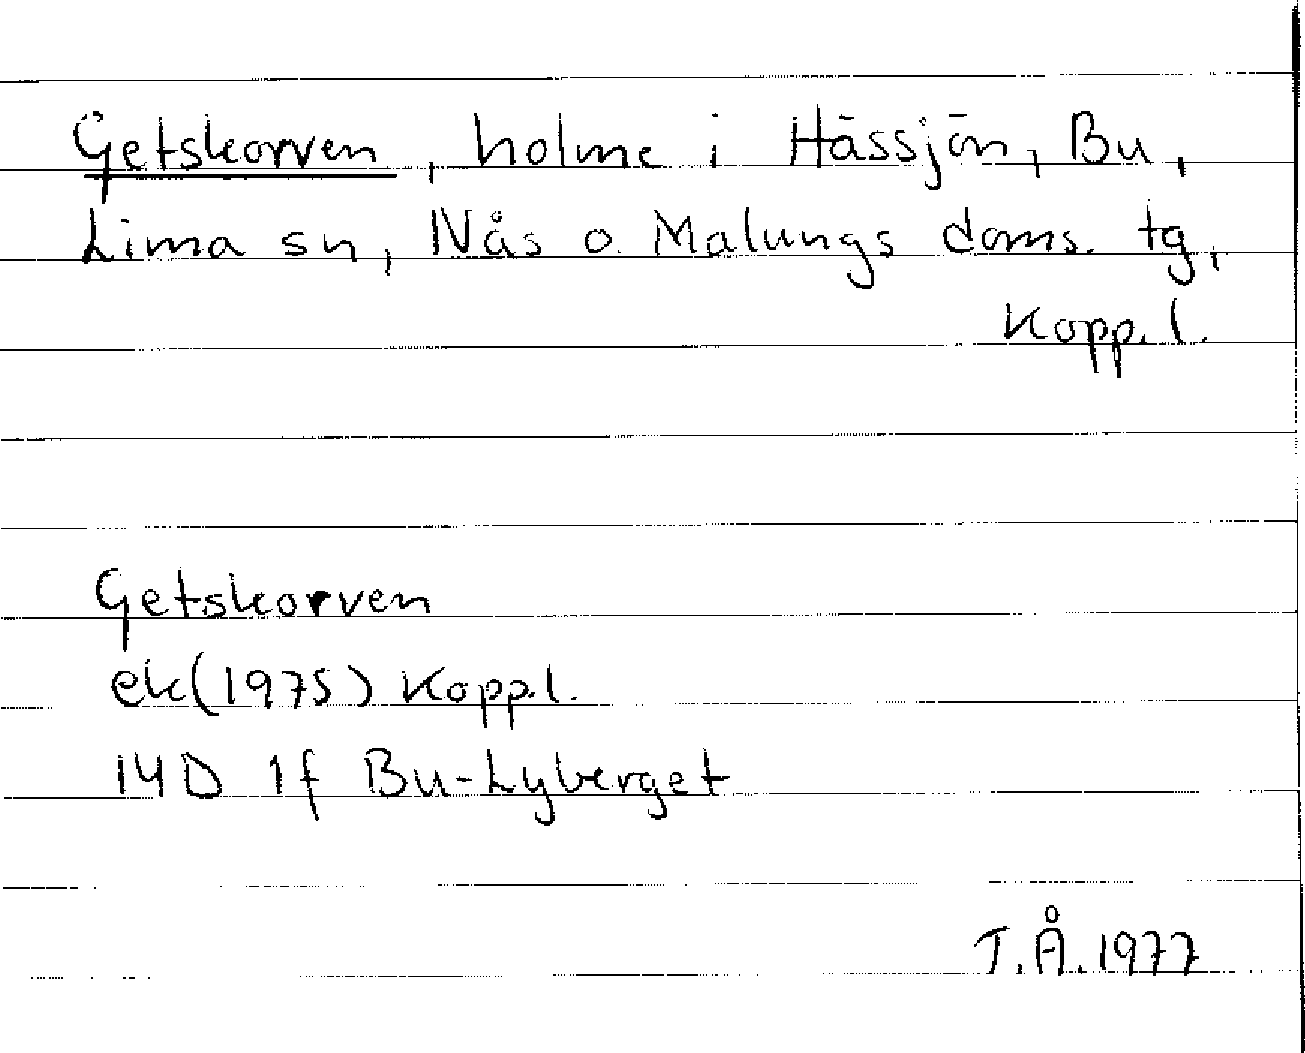 Getskorven, holme i Hässjön, Bu,
Lima sn, Nås o. Malungs doms. tg,
Kopp. l.
Getskorven
ek(1975) Kopp.l.
14D 1f Bu-Lyberget
T.Å.1977